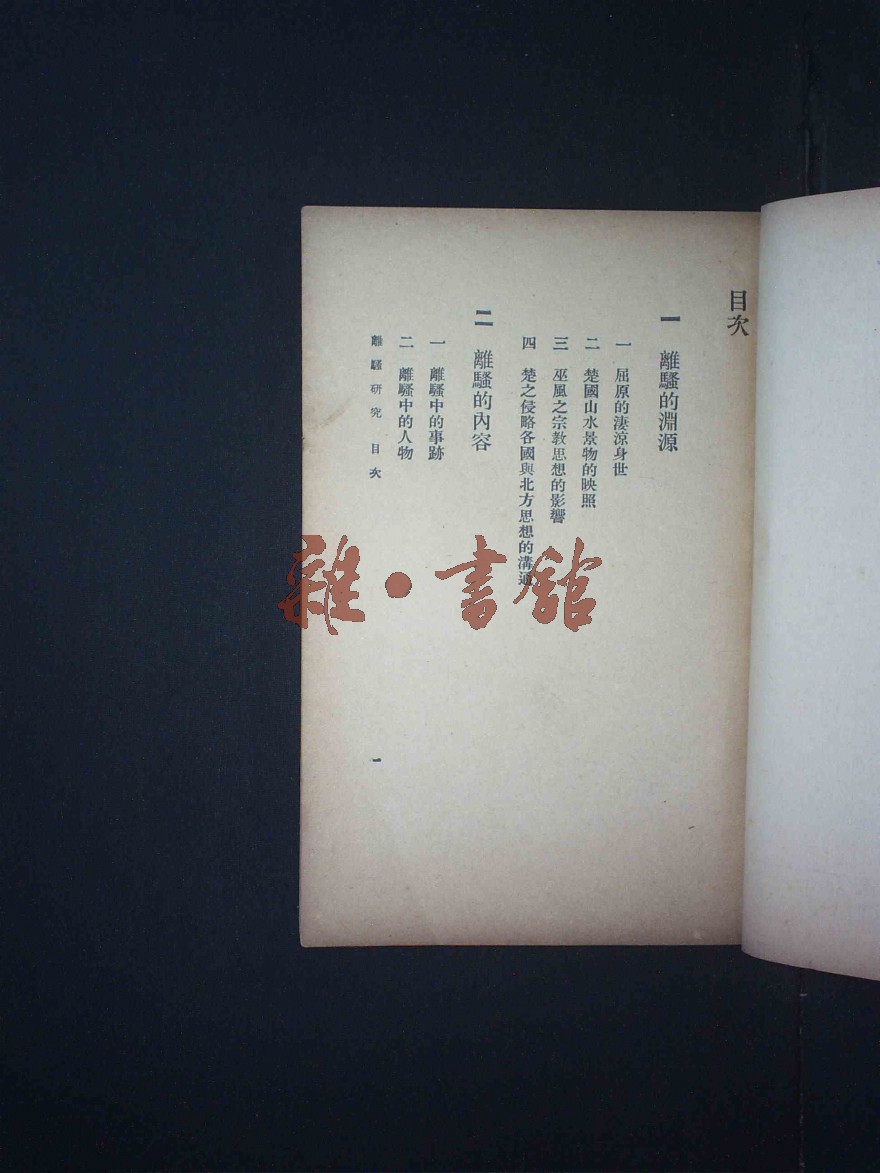 目次
一 離騷的淵源
一 屈原的淒涼身世
二 楚國山水景物的映照
三 巫風之宗教思想的影響
四 楚之侵略各國與北方思想的溝通
二 離騷的內容
一 離騷中的事跡
二 離騷中的人物
離騷研究 目次
一
雜·書館